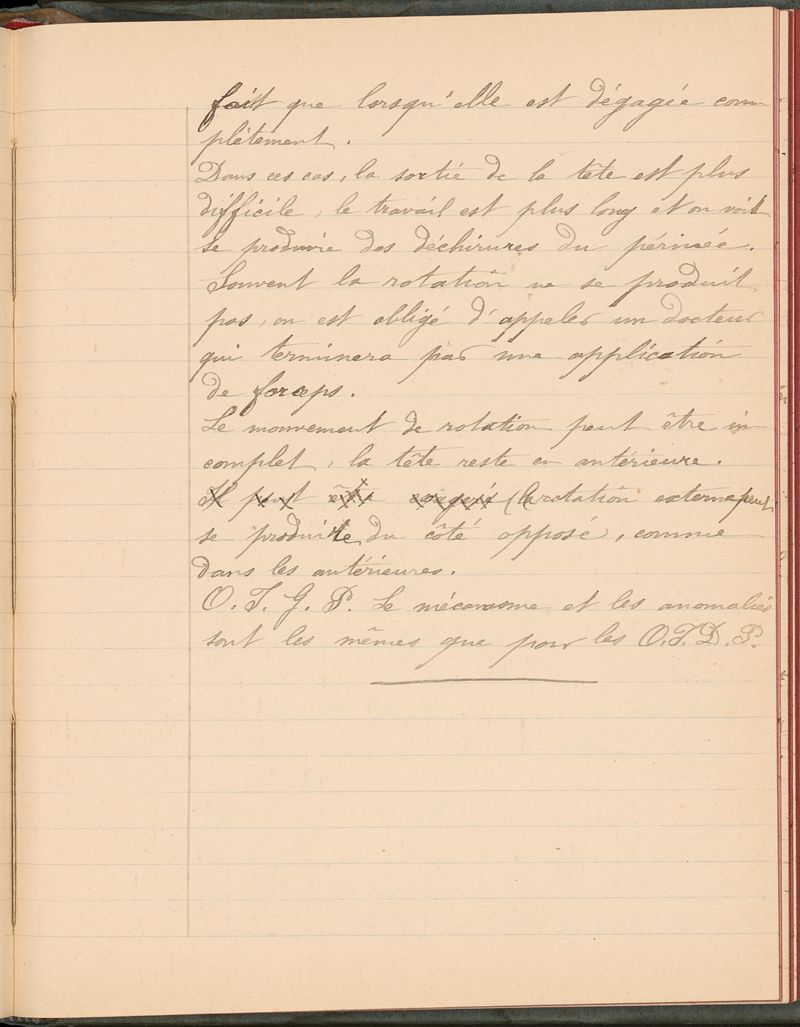 fait que lorsqu'elle est dégagée com-
plètement.
Dans ces cas, la sortie de la tête est plus
difficile, le travail est plus long et on voit
se produire des déchirures du périnée.
Souvent la rotation ne se produit
pas, on est obligé d'appeler un docteur
qui terminera par une application
de forceps.
Le mouvement de rotation peut être in-
complet, la tête reste en antérieure.
Il peut être exagéré (la rotation externe peut
se produire du côté opposé, comme
dans les antérieures.
O. I. G. P. Le mécanisme et les anomalies
sont les mêmes que pour les O.I.D.P.